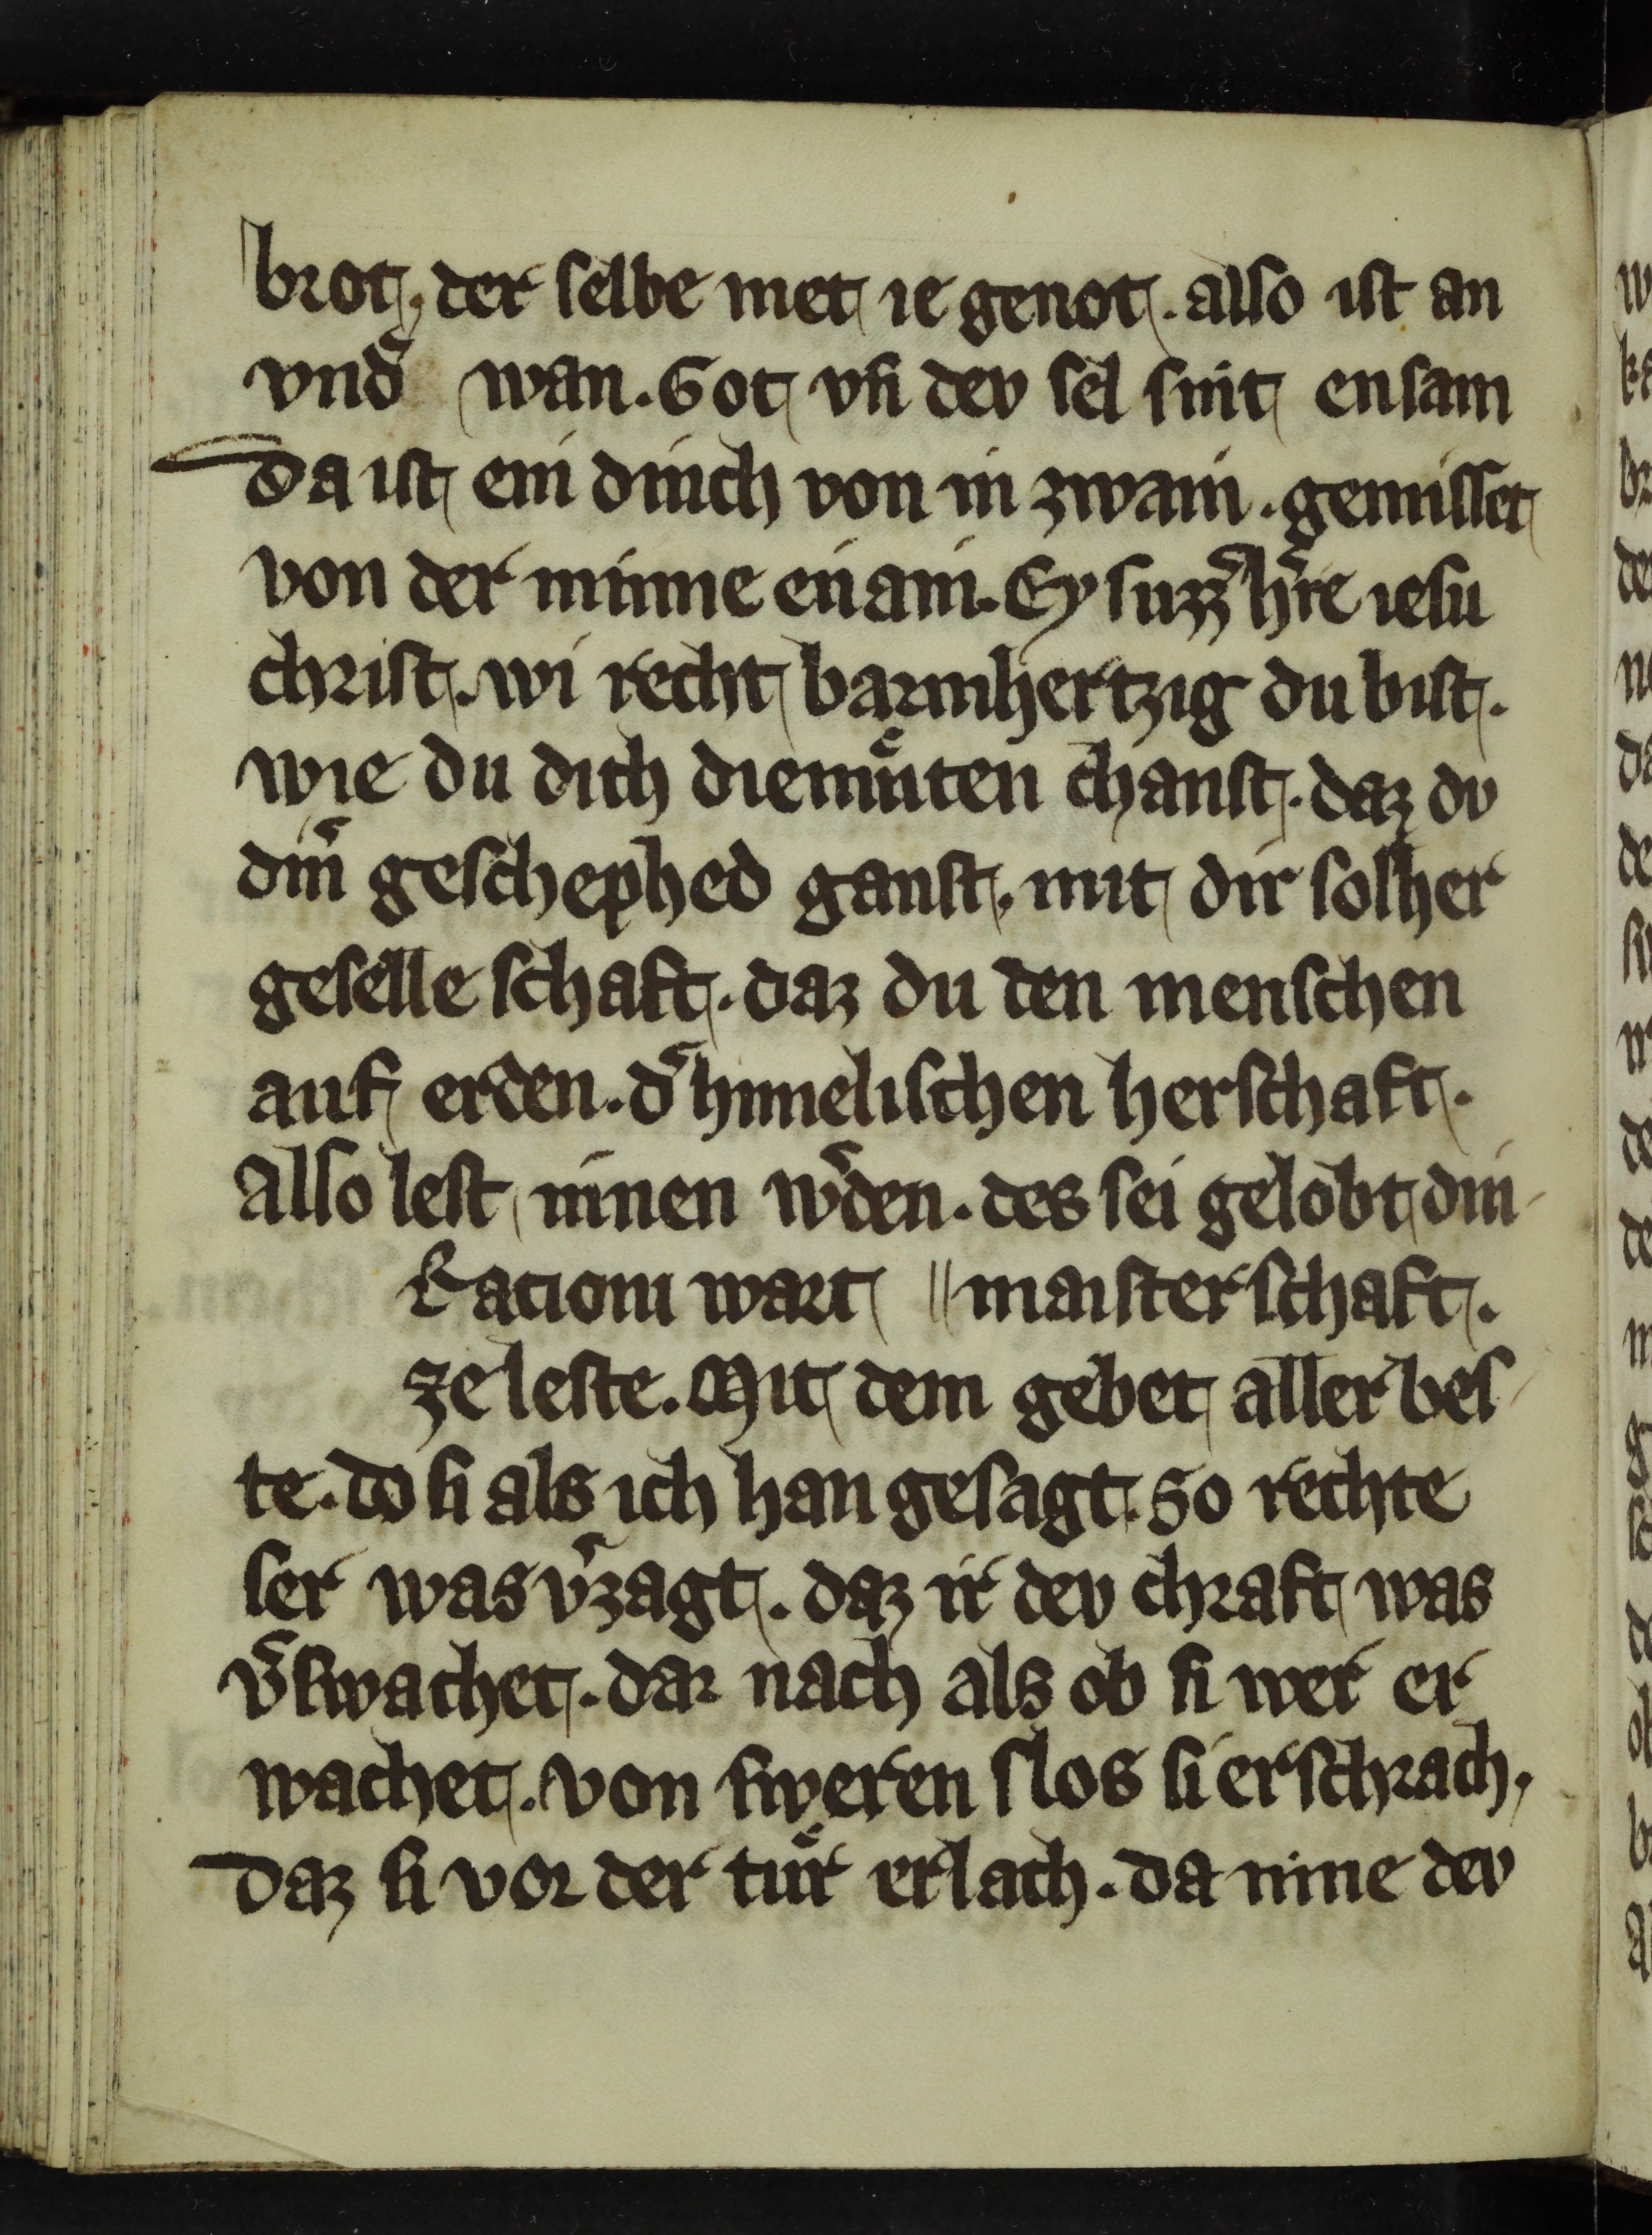 brot. der selbe met ie genot. also ist an
vnd͛ wan. Got vn̄ dev sel sint ensam
Da ist ein dinch von in zwain. gemisset
von der minne en ain. Ey suzz͛ h͛re iesu
christ. wi recht barmhertzig du bist.
wie du dich diemuͤten chanst. daz dv
din͛ geschephed ganst. mit dir solher
geselle schaft. daz du den menschen
auf erden. d͛ himelischen herschaft.
Also lest innen w͛den. des sei gelobt din
Racioni wart || maisterschaft.
ze leste. Mit dem gebet aller bes
te. do si als ich han gesagt. So rechte
ser was v͛zagt. daz ir dev chraft was
v͛swachet. dar nach als ob si wer er
wachet. von sweren slos si erschrach.
Daz si vor der tuͤr erlach. da nine dev